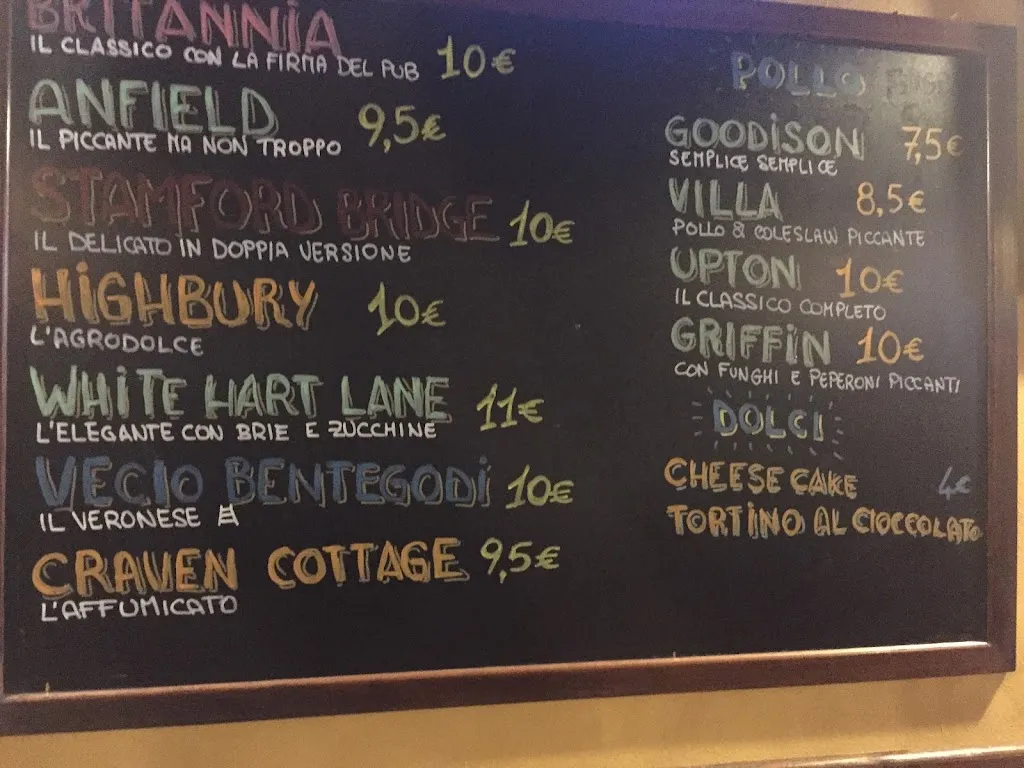 BRITANNIA 10€
IL CLASSICO CON LA FIRMA DEL PUB
ANFIELD 9,5€
IL PICCANTE MA NON TROPPO
STAMFORD BRIDGE 10€
IL DELICATO IN DOPPIA VERSIONE
HIGHBURY 10€
L'AGRODOLCE
WHITE HART LANE 11€
L'ELEGANTE CON BRIE E ZUCCHINE
VECIO BENTEGODI 10€
IL VERONESE
CRAVEN COTTAGE 9,5€
L'AFFUMICATO
POLLO
GOODISON 7,5€
SEMPLICE SEMPLICE
VILLA 8,5€
POLLO & COLESLAW PICCANTE
UPTON 10€
IL CLASSICO COMPLETO
GRIFFIN 10€
CON FUNGHI E PEPERONI PICCANTI
DOLCI
CHEESE CAKE 4€
TORTINO AL CIOCCOLATO